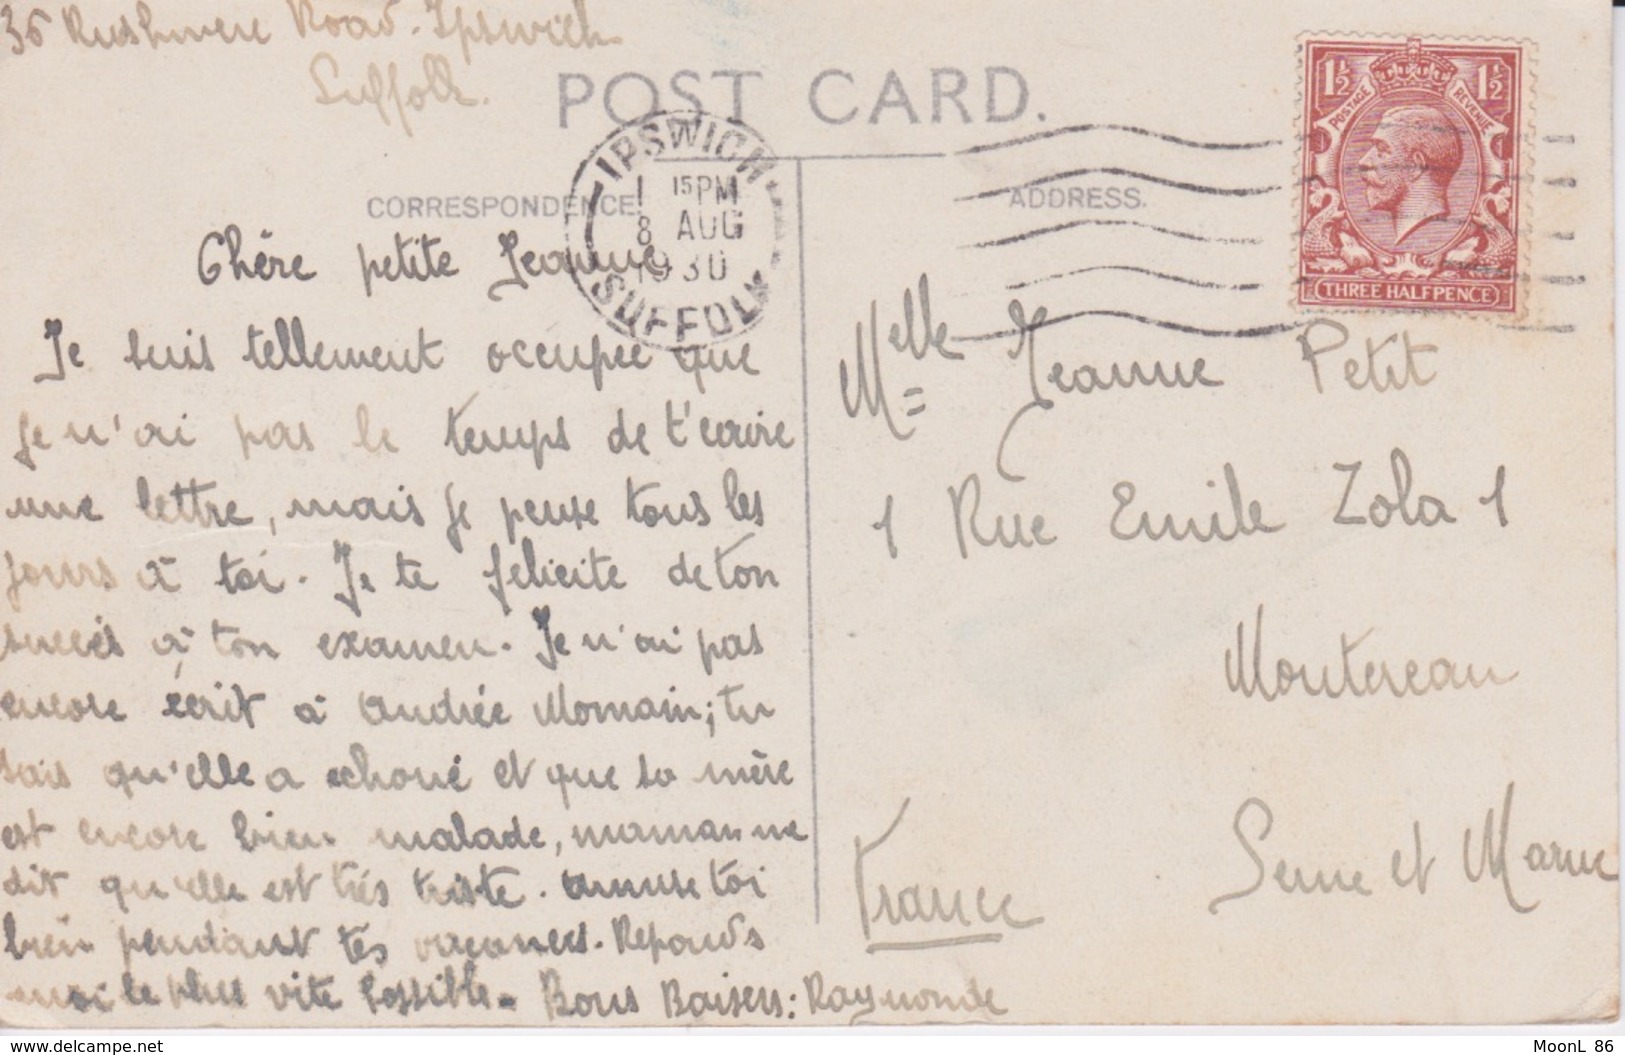 36 Rushmere Road. Ipswich
Suffolk.
POST CARD.
IPSWICH
1 15 PM
8 AUG
1930
SUFFOLK
1½ 1½
POSTAGE REVENUE
THREE HALFPENCE
CORRESPONDENCE
ADDRESS.
Chère petite Jeanne
Je suis tellement occupée que
je n'ai pas le temps de t'écrire
une lettre, mais je pense tous les
jours à toi. Je te felicite de ton
succés à ton examen. Je n'ai pas
encore écrit à Andrée Momain; tu
sais qu'elle a echoué et que sa mère
est encore bien malade, maman me
dit qu'elle est trés triste. Amuse toi
bien pendant tes vacances. Reponds
moi le plus vite possible. Bons Baisers: Raymonde
Melle Jeanne Petit
1 Rue Emile Zola 1
Montereau
Seine et Marne
France
MoonL 86
www.delcampe.net